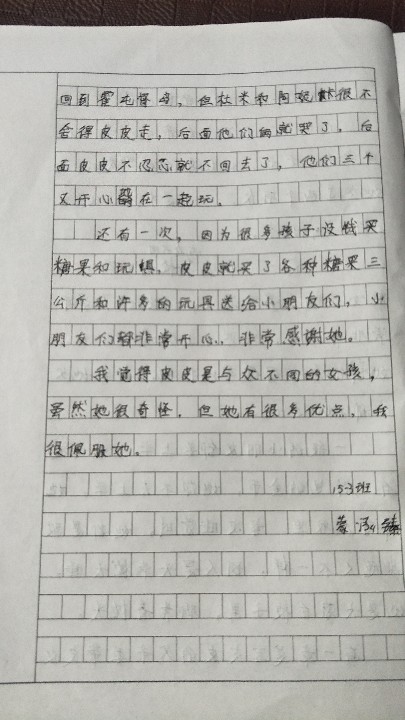 回到霍屯督岛，但杜米和阿妮就很不
舍得皮皮走，后面他们俩就哭了，后
面皮皮不忍心就不回去了，他们三个
又开心在一起玩。
还有一次，因为很多孩子没钱买
糖果和玩具，皮皮就买了各种糖果三
公斤和许多的玩具送给小朋友们，小
朋友们都非常开心，非常感谢她。
我觉得皮皮是与众不同的女孩，
虽然她很奇怪，但她有很多优点，我
很佩服她。
153班